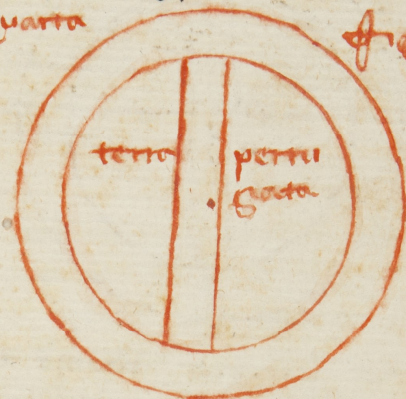 uarta
terra pertu
sata